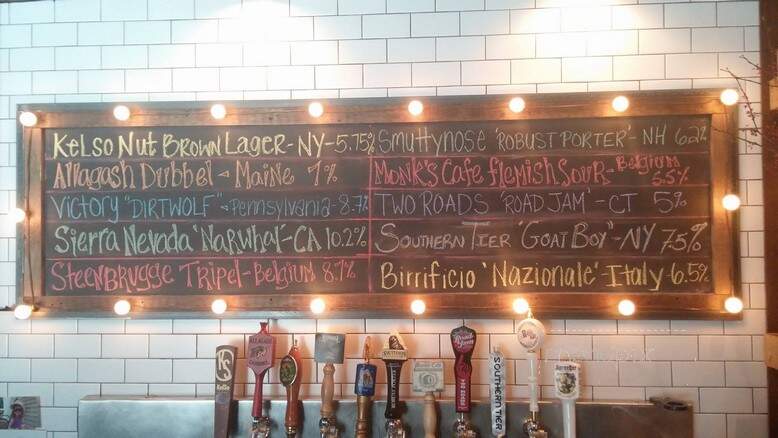 Kelso Nut Brown Lager - NY - 5.75%
Allagash Dubbel - Maine 7%
Victory "DIRTWOLF" - Pennsylvania - 8.7%
Sierra Nevada 'Narwhal' - CA 10.2%
Steenbrugge Tripel - Belgium 8.7%
Smuttynose 'ROBUST PORTER' - NH 6.2%
Monk's Cafe Flemish Sour - Belgium 5.5%
TWO ROADS 'ROAD JAM' - CT 5%
Southern Tier 'Goat Boy' - NY 7.5%
Birrificio 'Nazionale' Italy - 6.5%
SOUTHERN TIER